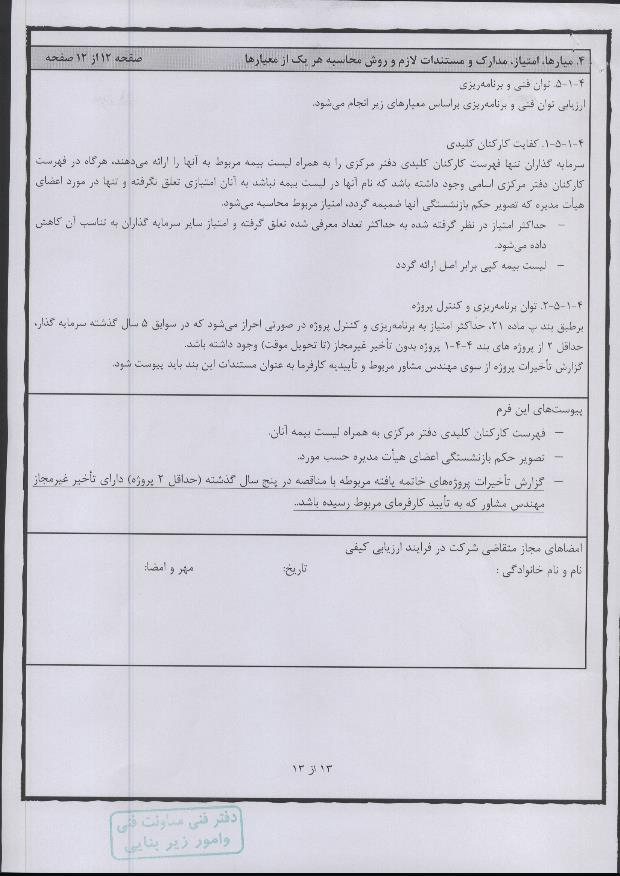 ۴. میارها، امتیاز، مدارک و مستندات لازم و روش محاسبه هر یک از معیارها
صفحه ۱۲ از ۱۲ صفحه
۴-۱-۵. توان فنی و برنامه‌ریزی
ارزیابی توان فنی و برنامه‌ریزی براساس معیارهای زیر انجام می‌شود.
۴-۱-۵-۱. کفایت کارکنان کلیدی
سرمایه گذاران تنها فهرست کارکنان کلیدی دفتر مرکزی را به همراه لیست بیمه مربوط به آنها را ارائه می‌دهند، هرگاه در فهرست
کارکنان دفتر مرکزی اسامی وجود داشته باشد که نام آنها در لیست بیمه نباشد به آنان امتیازی تعلق نگرفته و تنها در مورد اعضای
هیأت مدیره که تصویر حکم بازنشستگی آنها ضمیمه گردد، امتیاز مربوط محاسبه می‌شود.
– حداکثر امتیاز در نظر گرفته شده به حداکثر تعداد معرفی شده تعلق گرفته و امتیاز سایر سرمایه گذاران به تناسب آن کاهش
داده می‌شود.
– لیست بیمه کپی برابر اصل ارائه گردد
۴-۱-۵-۲. توان برنامه‌ریزی و کنترل پروژه
برطبق بند پ ماده ۲۱، حداکثر امتیاز به برنامه‌ریزی و کنترل پروژه در صورتی احراز می‌شود که در سوابق ۵ سال گذشته سرمایه گذار،
حداقل ۲ از پروژه های بند ۴-۴-۱ پروژه بدون تأخیر غیرمجاز (تا تحویل موقت) وجود داشته باشد.
گزارش تأخیرات پروژه از سوی مهندس مشاور مربوط و تأییدیه کارفرما به عنوان مستندات این بند باید پیوست شود.
پیوست‌های این فرم
– فهرست کارکنان کلیدی دفتر مرکزی به همراه لیست بیمه آنان.
– تصویر حکم بازنشستگی اعضای هیأت مدیره حسب مورد.
– گزارش تأخیرات پروژه‌های خاتمه یافته مربوطه با مناقصه در پنج سال گذشته (حداقل ۲ پروژه) دارای تأخیر غیرمجاز
مهندس مشاور که به تأیید کارفرمای مربوط رسیده باشد..
امضاهای مجاز متقاضی شرکت در فرایند ارزیابی کیفی
نام و نام خانوادگی : تاریخ: مهر و امضا:
۱۳ از ۱۳
دفتر فنی معاونت فنی
وامور زیر بنایی